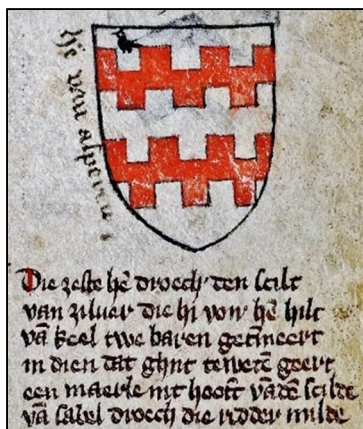 van
Die zeste hē droech den scilt
van ziluer die hi voir hē hilt
vā keel twe baren getīneert
in dien dat tewerē geert
een maerle int hooft vādē scilde
vā sabel droech die ridder milde